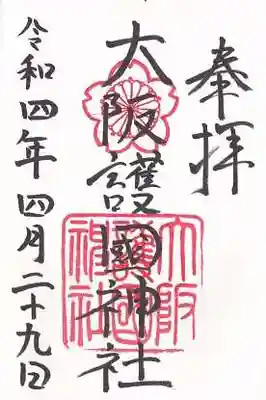 奉拝
大阪護國神社
令和四年四月二十九日
大阪護国神社